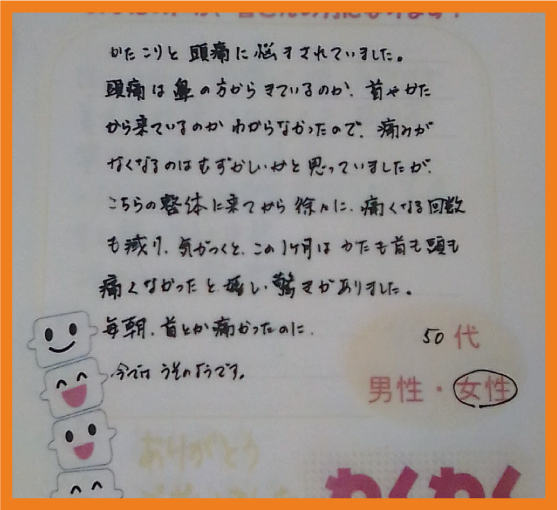 かたこりと頭痛に悩まされていました。
頭痛は鼻の方からきているのか、首やかた
から来ているのかわからなかったので、痛みが
なくなるのはむずかしいかと思っていましたが、
こちらの整体に来てから徐々に、痛くなる回数
も減り、気がつくと、この1ヶ月はかたも首も頭も
痛くなかったと嬉しい驚きがありました。
毎朝、首とか痛かったのに、
今ではうそのようです。
50代
男性・女性
ありがとう
わくわく